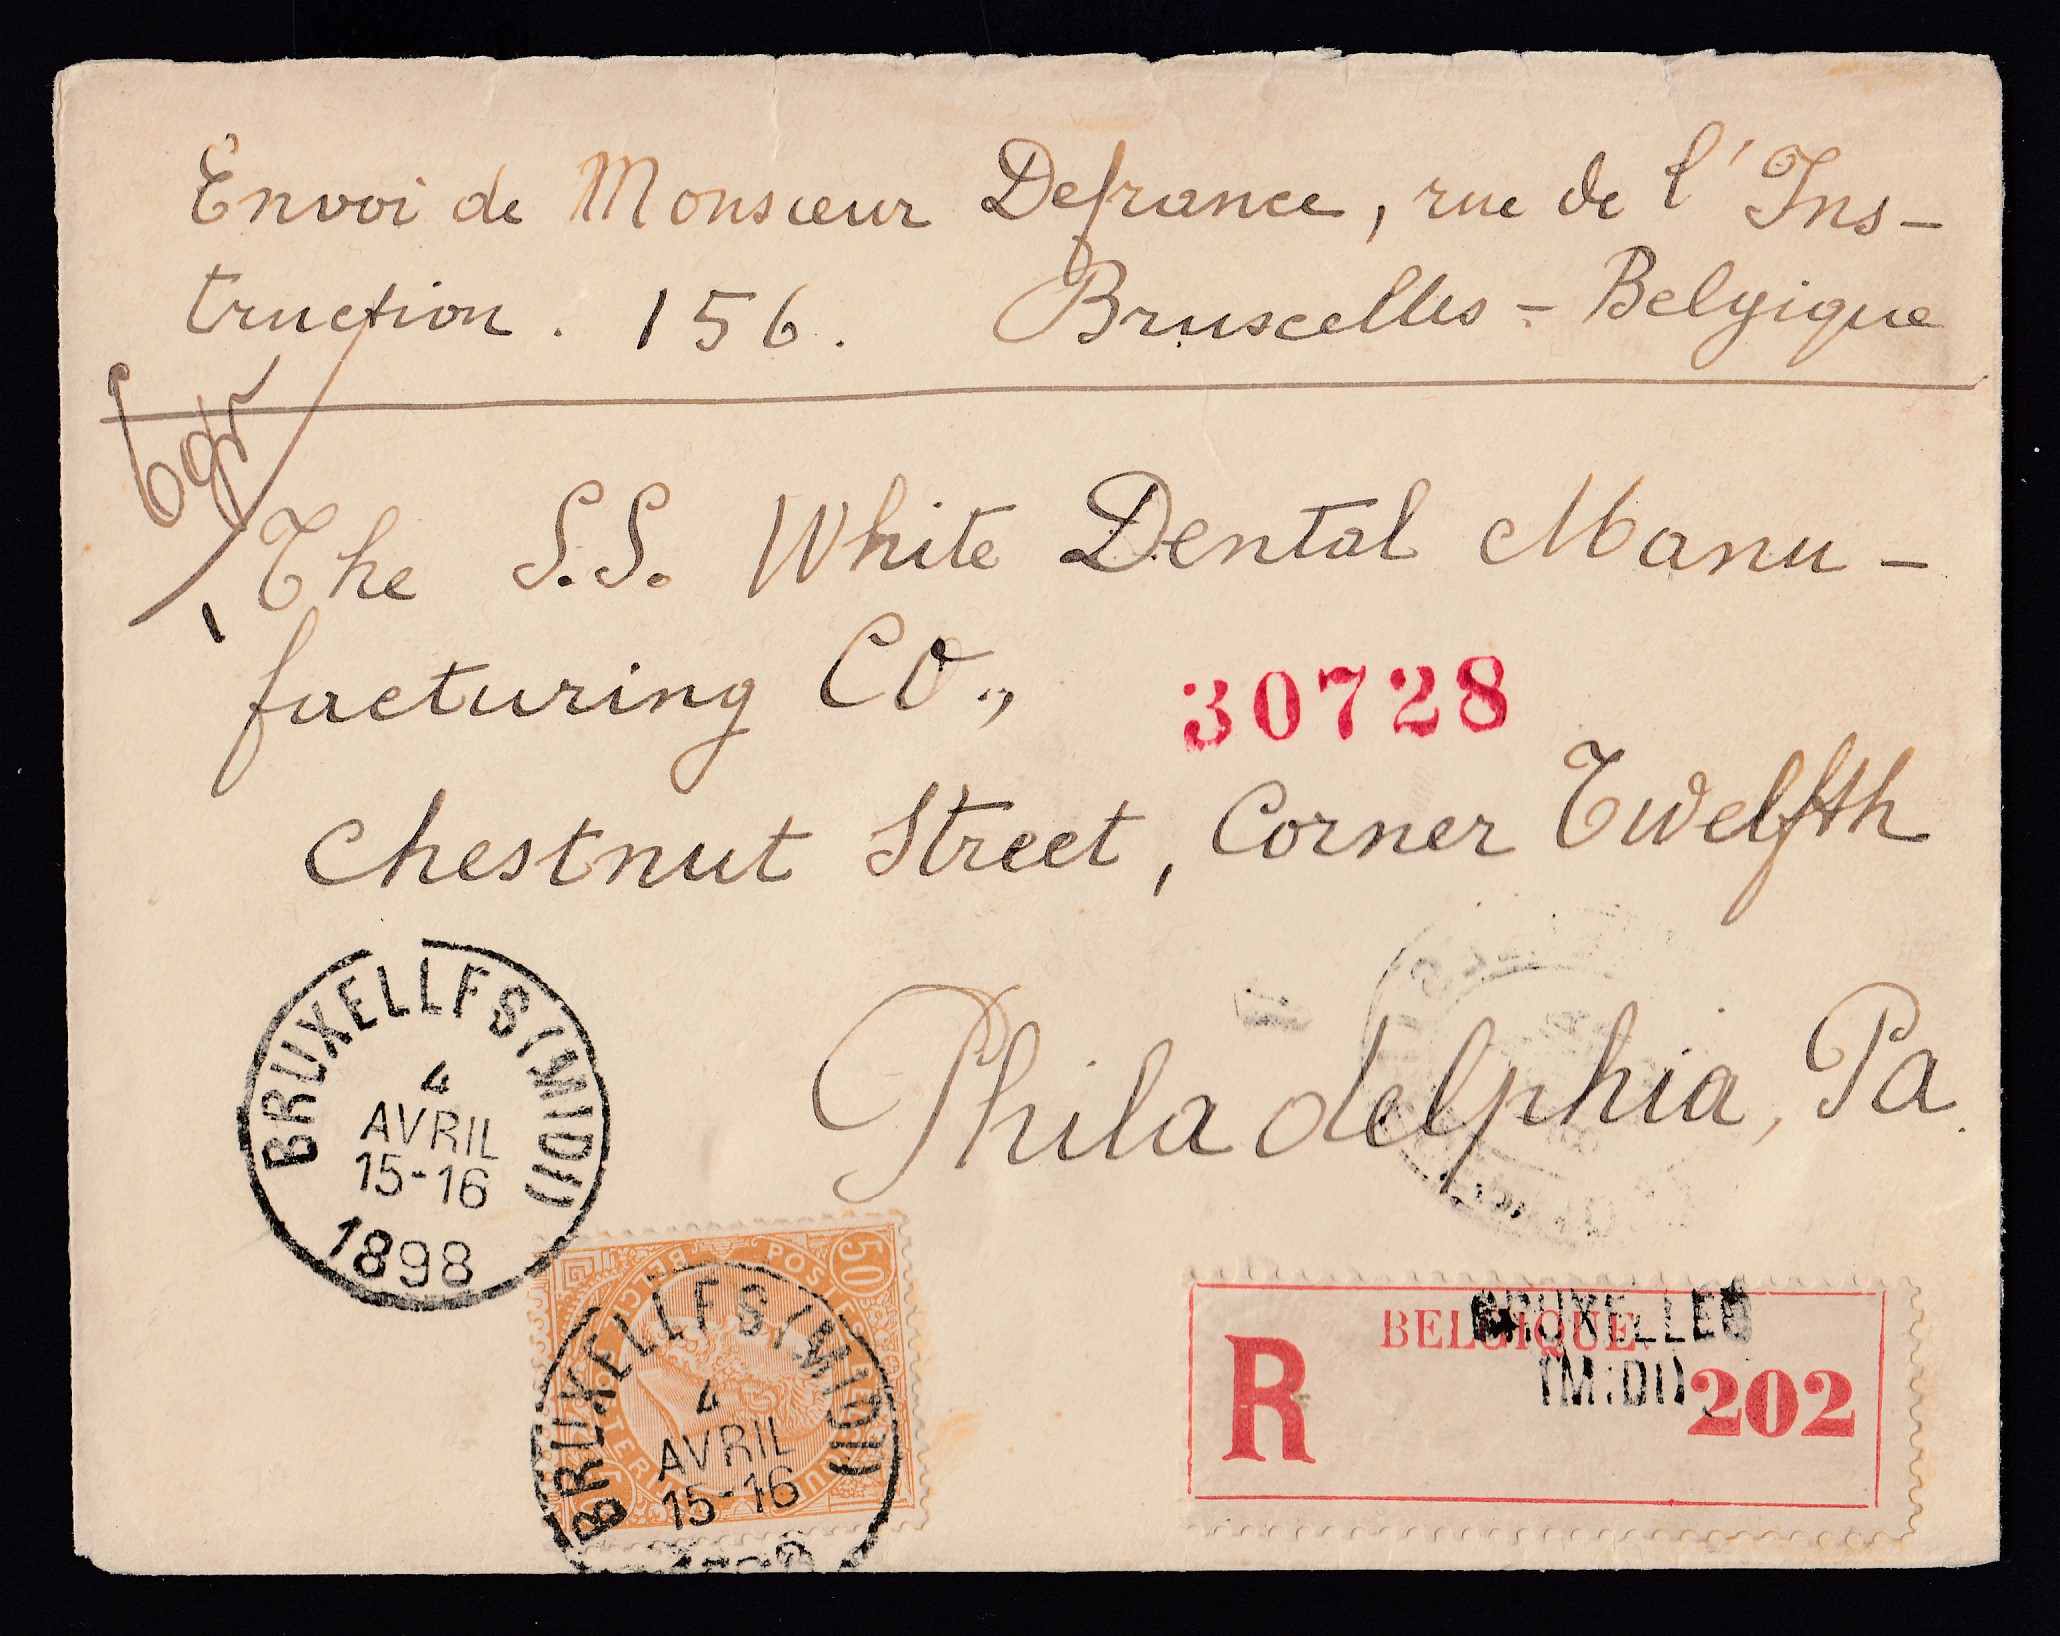 Envoi de Monsieur Defrance, rue de l'Ins-
truction. 156. Bruxelles - Belgique
6gr
The S.S. White Dental Manu-
facturing Co.,
30728
Chestnut Street, Corner Twelfth
Philadelphia, Pa.
BRUXELLES (MIDI)
4
AVRIL
15-16
1898
50
POSTE
BRUXELLES (MIDI)
4
AVRIL
15-16
1898
R
BELGIQUE
BRUXELLES
(MIDI)
202